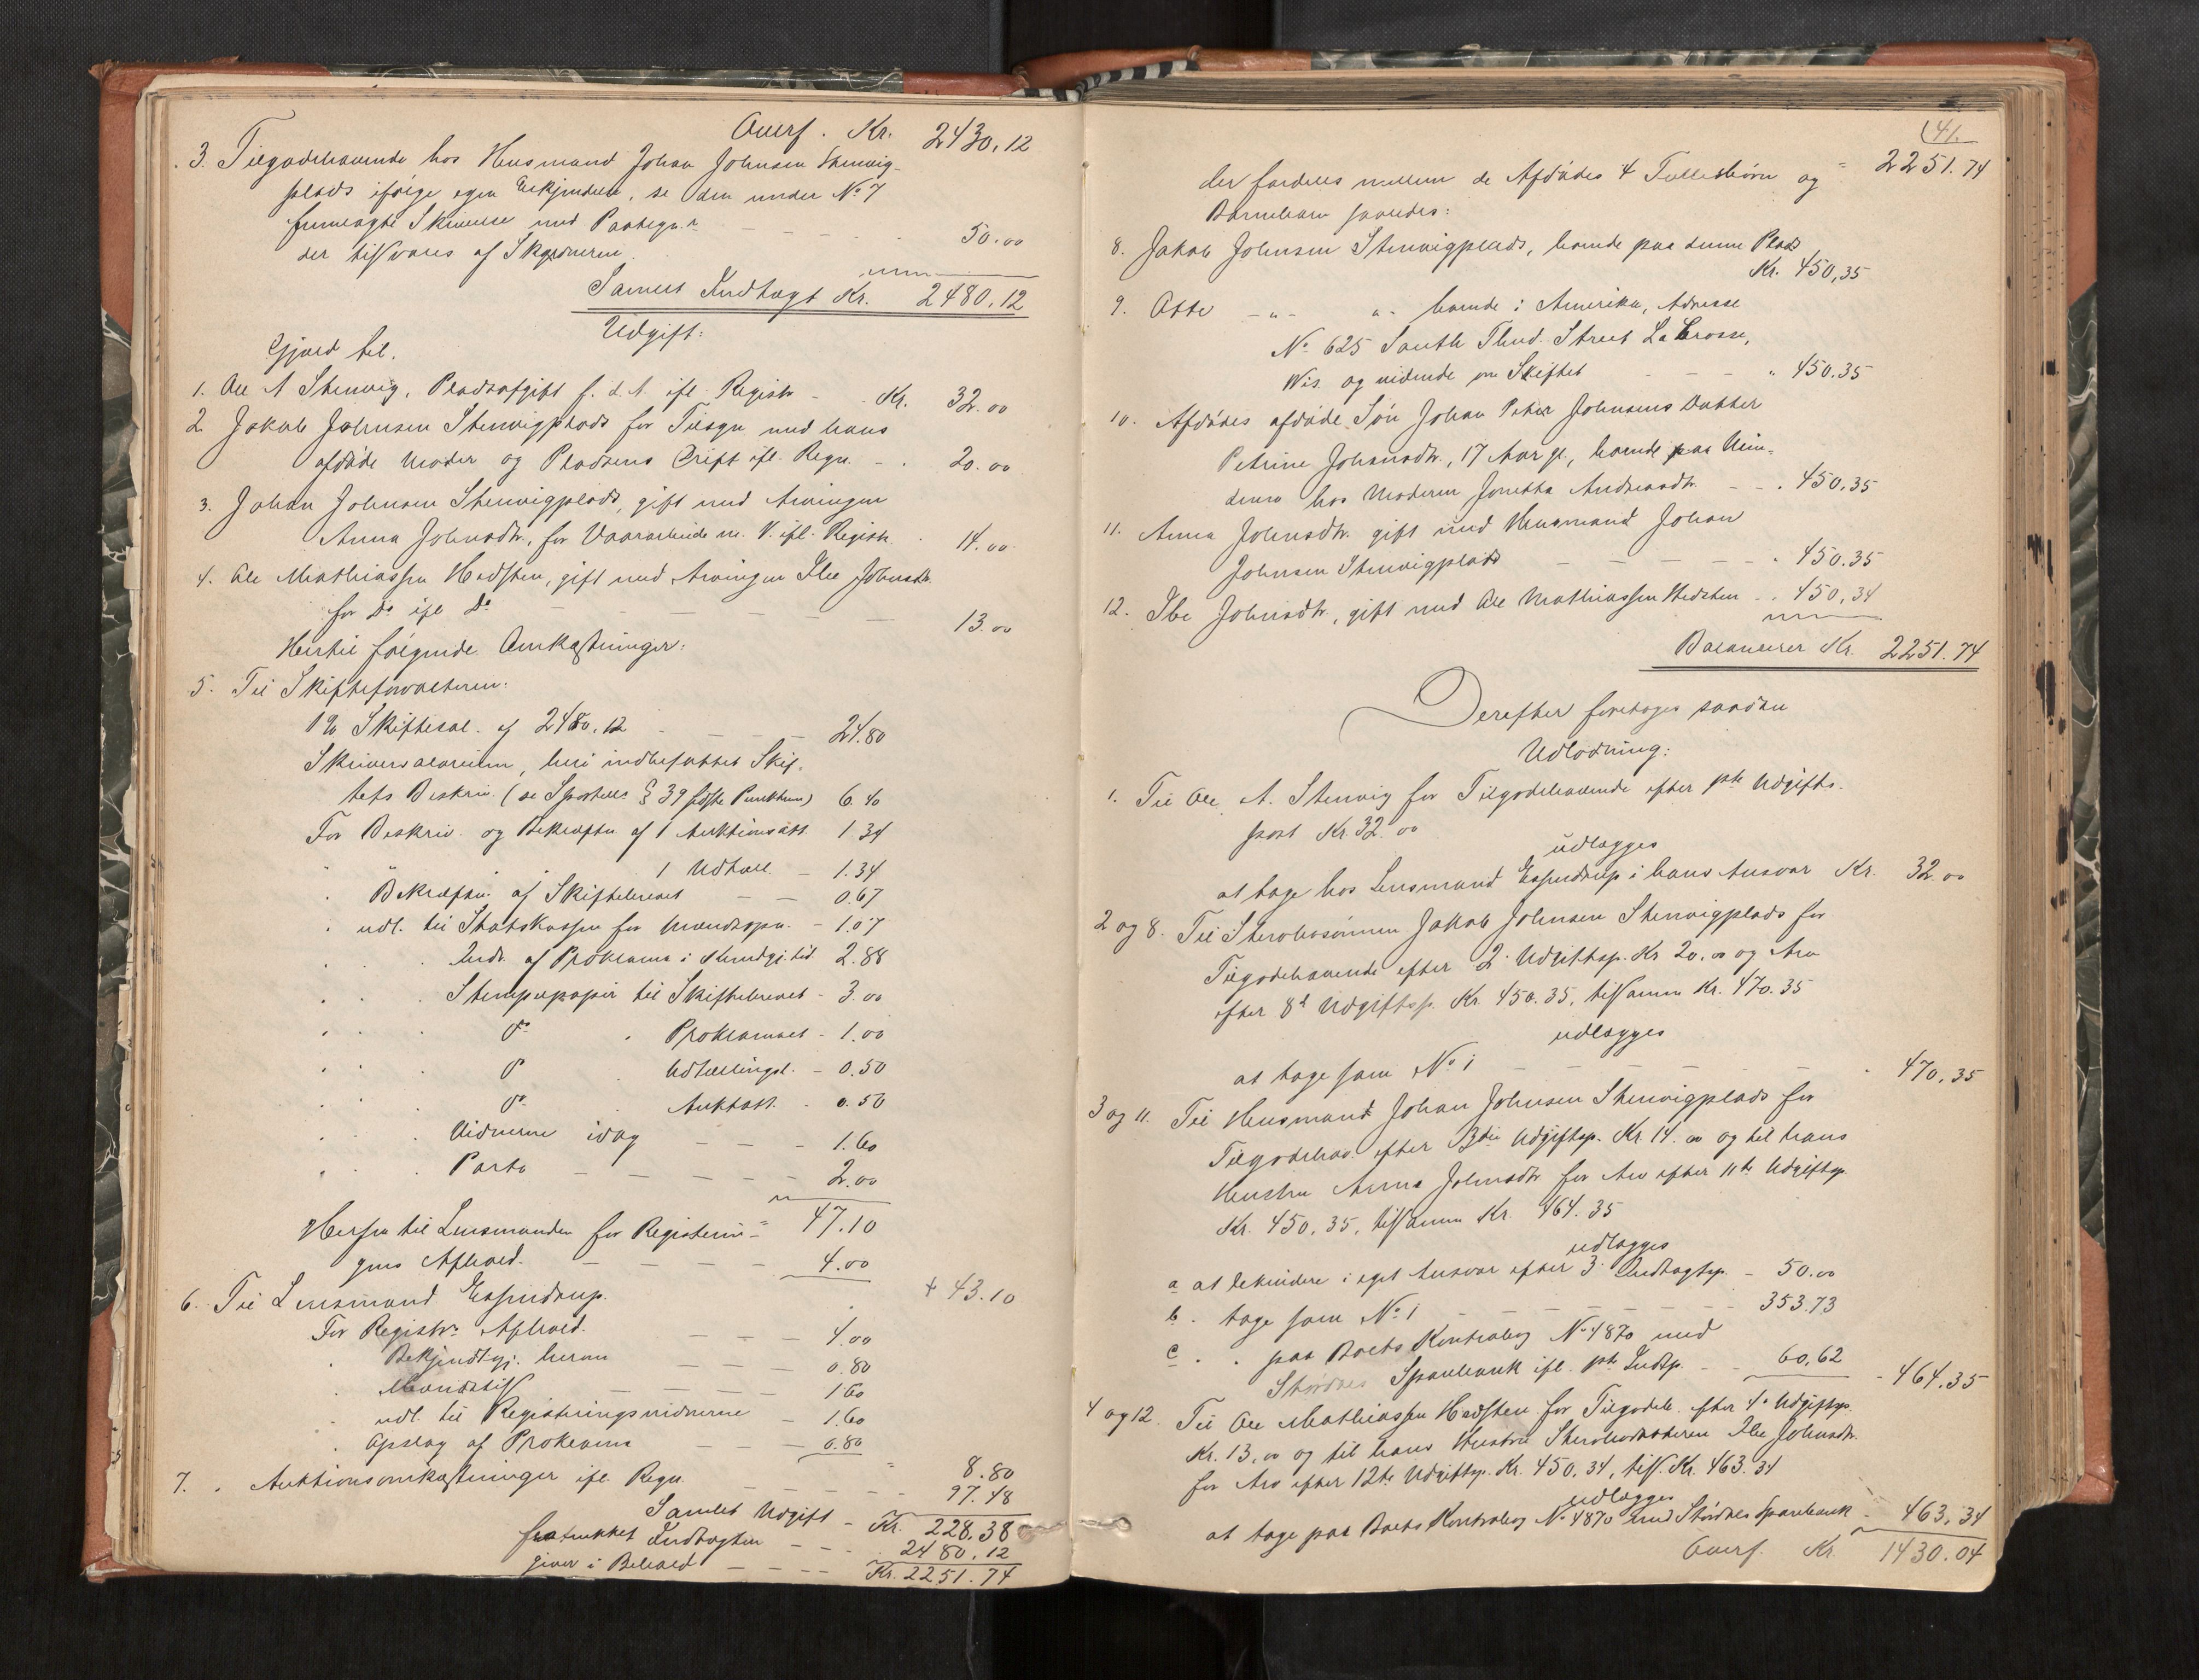 Overf. Kr. 2430.12
3. Tilgodehavende hos Husmand Johan Johnsen Stenvig-
plads ifølge egen Erkjendelse, se den under No 7
fremlagte Skrivelse med Paategn.
der tilsvares af Skyldneren 50.00
Samlet Indtægt Kr. 2480.12
Udgift:
Gjæld til.
1. Ole A Stenvig, Pladsafgift f. d. A. ifl. Registr. - Kr. 32.00
2. Jakob Johnsen Stenvigplads for Tilsyn med hans
afdøde Moder og Pladsens Drift ifl. Regn. - 20.00
3. Johan Johnsen Stenvigplads, gift med Arvingen
Anna Johnsdtr., for Vaararbeide m. V. ifl. Registr. 14.00
4. Ole Mathiassen Hedsten, gift med Arvingen Ibe Johnsdtr.
for Do ifl. Do 13.00
Hertil følgende Omkostninger:
5. Til Skifteforvalteren:
1% Skiftesal. af 2480.12 24.80
Skriversalarium, heri indbefattet Skif-
tets Beskriv. (se Sportell. § 39 sidste Punktum) 6.40
For Beskriv. og Bekræftn. af 1 Auktionsatt. 1.34
" " 1 Udtæll. - 1.34
" Bekræftn. af Skiftebrevet - - 0.67
" udl. til Statskassen for Mandsopn. - 1.07
" " Indr. af Proklama i Kundgj. tid. 2.88
" " Stempelpapir til Skiftebrevet - 3.00
" " Do " Proklamaet - 1.00
" " Do " Udtællingsl. - 0.50
" " Do " Auktatt. - 0.50
" " Vidnerne idag - - - 1.60
" " Porto - - - - 2.00
47.10
Herfra til Lensmanden for Registerin-
gens Afhold. - - - - 4.00
+ 43.10
6. Til Lensmand Espendrup.
For Registr. Afhold. - - - 4.00
" Bekjendtgj. herom - - - 0.80
" Mandstill - - - - 1.60
" udl. til Registeringsvidnerne - 1.60
" Opslag af Proklama - - - 0.80
8.80
7. " Auktionsomkostninger ifl. Regn. - - - 97.48
Samlet Udgift - Kr. 228.38
fratrukket Indtægten - - - 2480.12
giver i Behold - - - - Kr. 2251.74
141.
der fordeles mellem de Afdødes 4 Fællesbørn og = 2251.74
Barnebarn saaledes:
8. Jakob Johnsen Stenvigplads, boende paa denne Plads
Kr. 450,35
9. Otte - " - " - boende i Amerika, Adresse
No 625 South Third Street La Crosse,
Wis. og vidende om Skiftet - - - " 450.35
10. Afdødes afdøde Søn Johan Peter Johnsens Datter
Petrine Johansdtr., 17 Aar gl., boende paa
hos Moderen Jonetta Andreasdtr. - - " 450.35
11. Anna Johnsdtr. gift med Husmand Johan
Johnsen Stenvigplads - - - - - " 450.35
12. Ibe Johnsdtr., gift med Ole Mathiassen Hedsten - " 450,34
Balancerer Kr. 2251.74
Derefter foretoges saadan
Udlodning:
1. Til Ole A. Stenvig for Tilgodehavende efter 1ste Udgifts-
post Kr. 32.00
udlægges
at tage hos Lensmand Espendrup i hans Ansvar Kr. 32.00
2 og 8. Til Stervbosønnen Jakob Johnsen Stenvigplads for
Tilgodehavende efter 2. Udgiftsp. Kr 20.00 og Arv
efter 8de Udgiftsp. Kr. 450.35, tilsammen Kr. 470.35
udlægges
at tage som No 1 - - - - - - " 470.35
3 og 11. Til Husmand Johan Johnsen Stenvigplads for
Tilgodehav. efter 3die Udgiftsp. Kr. 14.00 og til hans
Hustru Anna Johnsdtr. for Arv efter 11te Udgiftsp.
Kr. 450.35, tilsammen Kr. 464.35
udlægges
a at likvidere i eget Ansvar efter 3. Indtægtsp. - 50.00
b " tage som No 1 - - - - - - 353.73
c " " paa Boets Kontrabog No 4870 med
Størdnes Sparebank ifl. 1ste Indtp. - - 60,62
- 464.35
4 og 12. Til Ole Mathiassen Hedsten for Tilgodeh. efter 4. Udgiftsp.
Kr. 13.00 og til hans Hustru Stervbodatteren Ibe Johnsdtr.
for Arv efter 12te Udgiftsp. Kr. 450.34, tils. Kr. 463.34
udlægges
at tage paa Boets Kontrabog No 4870 med Størdnes Sparebank - 463.34
Overf. Kr. 1430.04